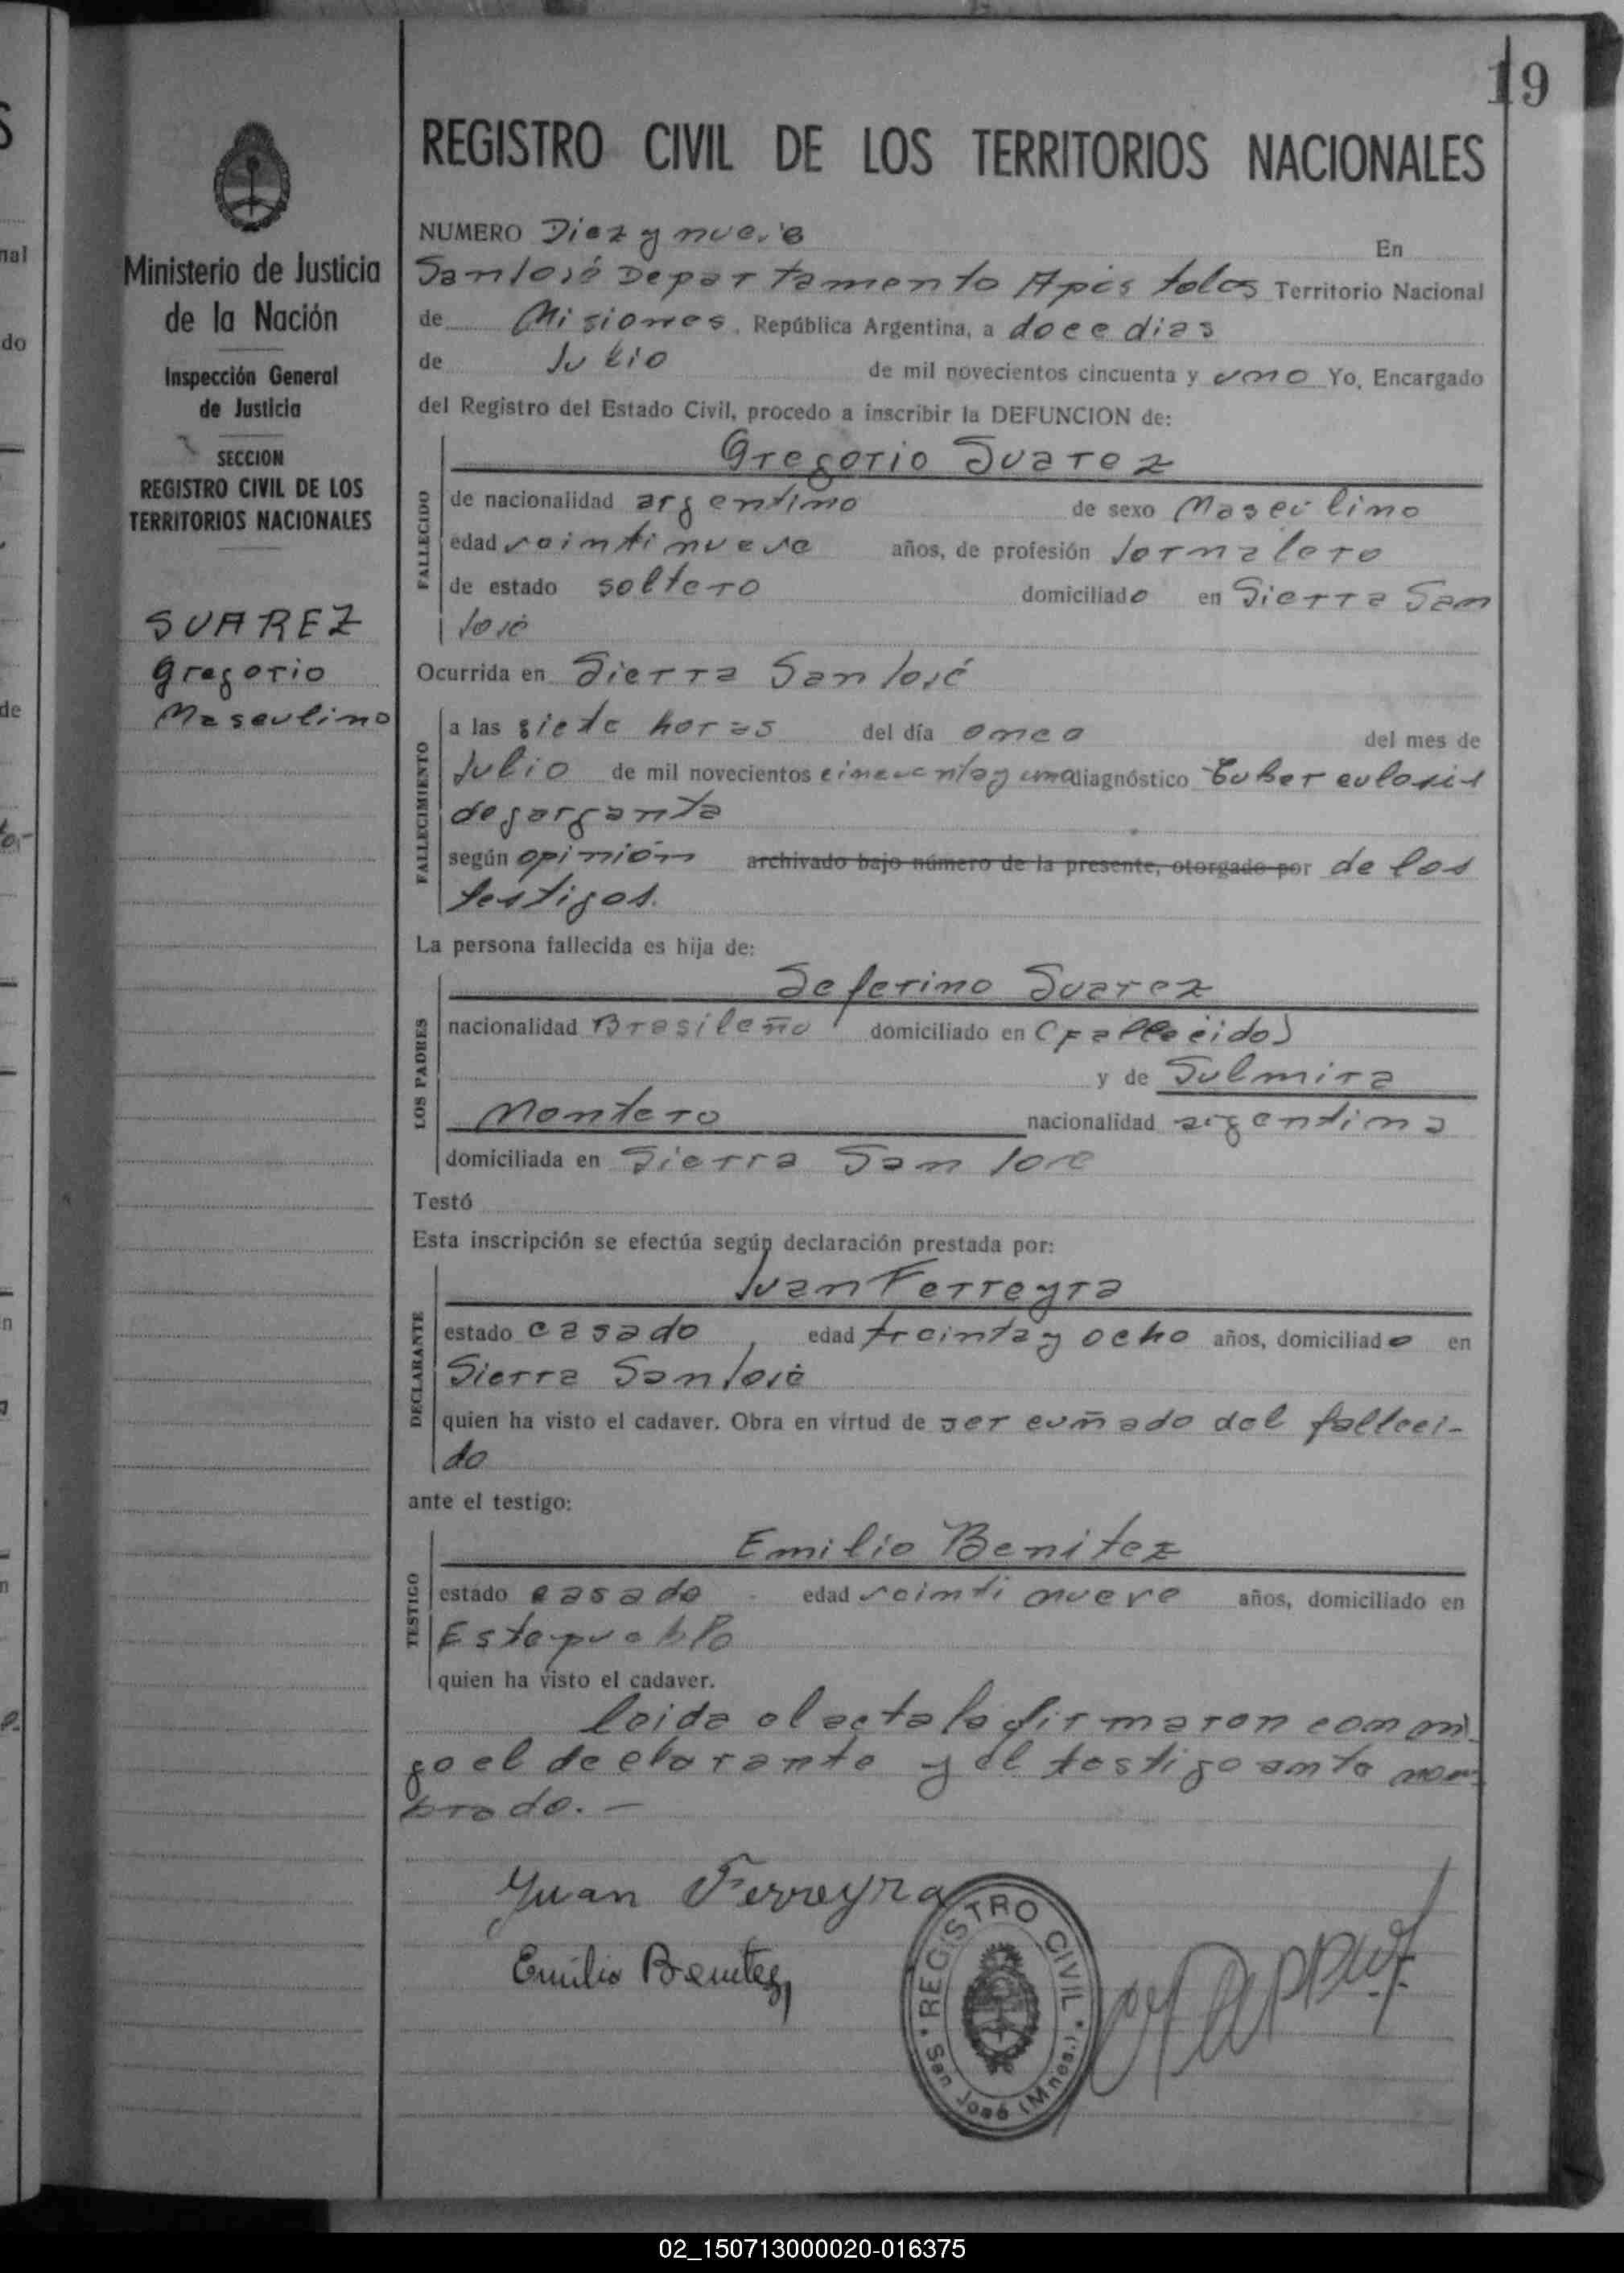 19
REGISTRO CIVIL DE LOS TERRITORIOS NACIONALES
Ministerio de Justicia
de la Nación
Inspección General
de Justicia
SECCION
REGISTRO CIVIL DE LOS
TERRITORIOS NACIONALES
SUAREZ
Gregorio
Masculino
NUMERO Diez y nueve En
San José Departamento Apóstoles Territorio Nacional
de Misiones, República Argentina, a doce dias
de Julio de mil novecientos cincuenta y uno Yo, Encargado
del Registro del Estado Civil, procedo a inscribir la DEFUNCION de:
Gregorio Suarez
FALLECIDO
de nacionalidad argentino de sexo Masculino
edad veintinueve años, de profesión Jornalero
de estado soltero domiciliado en Sierra San
José
Ocurrida en Sierra San José
FALLECIMIENTO
a las siete horas del día once del mes de
Julio de mil novecientos cincuenta y uno diagnóstico tuberculosis
de garganta
según opinión archivado bajo número de la presente, otorgado por de los
testigos.
La persona fallecida es hija de:
LOS PADRES
Seferino Suarez
nacionalidad Brasileño domiciliado en (Fallecido)
y de Sulmira
Montero nacionalidad argentina
domiciliada en Sierra San Jose
Testó
Esta inscripción se efectúa según declaración prestada por:
DECLARANTE
Juan Ferreyra
estado casado, edad treinta y ocho años, domiciliado en
Sierra San José
quien ha visto el cadaver. Obra en virtud de ser cuñado del falleci-
do
ante el testigo:
TESTIGO
Emilio Benitez
estado casado edad veintinueve años, domiciliado en
Este pueblo
quien ha visto el cadaver.
leida el acta la firmaron conmi
go el declarante y el testigo ante nom
brado. —
Juan Ferreyra
Emilio Benitez
REGISTRO CIVIL
San José (Mnes.)
02_150713000020-016375